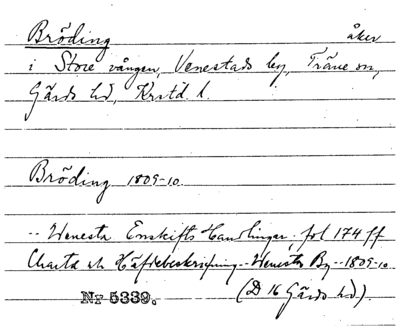 Bröding åker
i Store vången, Venestads by, Träne sn,
Gärds hd, Krstd. l.
Bröding 1809-10.
-- Wenesta Enskifts Handlingar, fol 174 ff
Charta och Häfdebeskrifning -- Wenesta By -- 1809-10
Nr 5339. (D 16 Gärds hd).